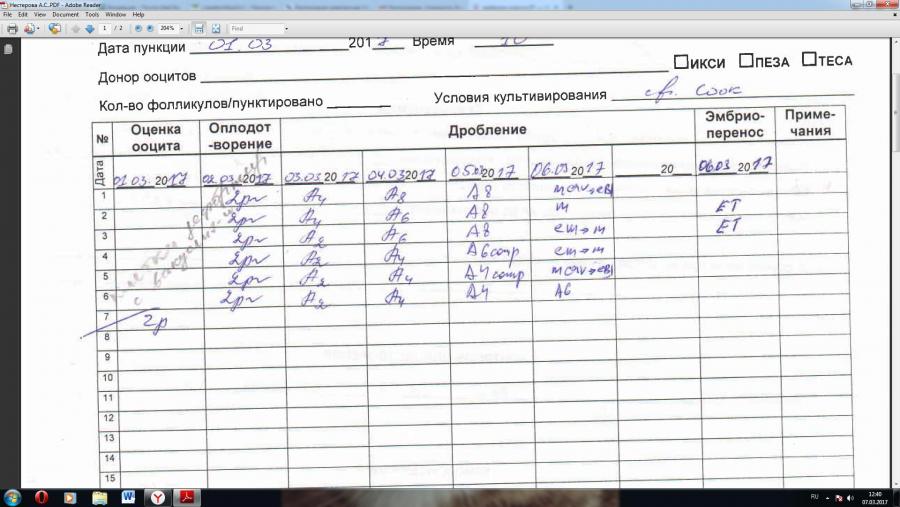 Нестерова А.С..PDF - Adobe Reader
File Edit View Document Tools Window Help
1 / 2 204% Find
Дата пункции 01.03 2017 Время 10
ИКСИ ПЕЗА ТЕСА
Донор ооцитов
Кол-во фолликулов/пунктировано Условия культивирования ср. Cook
№ Оценка ооцита Оплодот-ворение Дробление Эмбрио-перенос Приме-чания
Дата 01.03.2017 02.03.2017 03.03.2017 04.03.2017 05.03.2017 06.03.2017 20 06.03 2017
1 2pn A4 A8 A8
2 2pn A4 A6 A8 m ET
3 2pn A2 A6 A8 cm→m ET
4 2pn A2 A4 A6comp cm→m
5 2pn A2 A4 A4comp
6 2pn A2 A4 A4 A6
7 2p
8
9
10
11
12
13
14
15
RU 12:40
07.03.2017